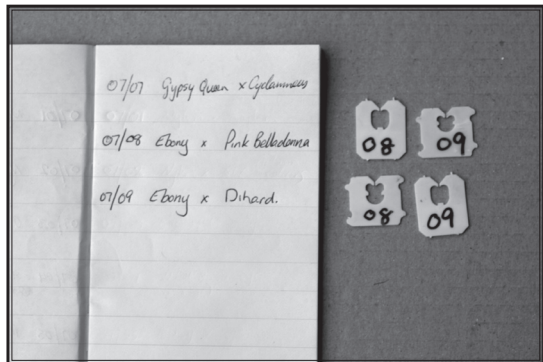 07/07 Gypsy Queen x Cyclamineus
07/08 Ebony x Pink Belladonna
07/09 Ebony x Dihard.
08 09
08 09